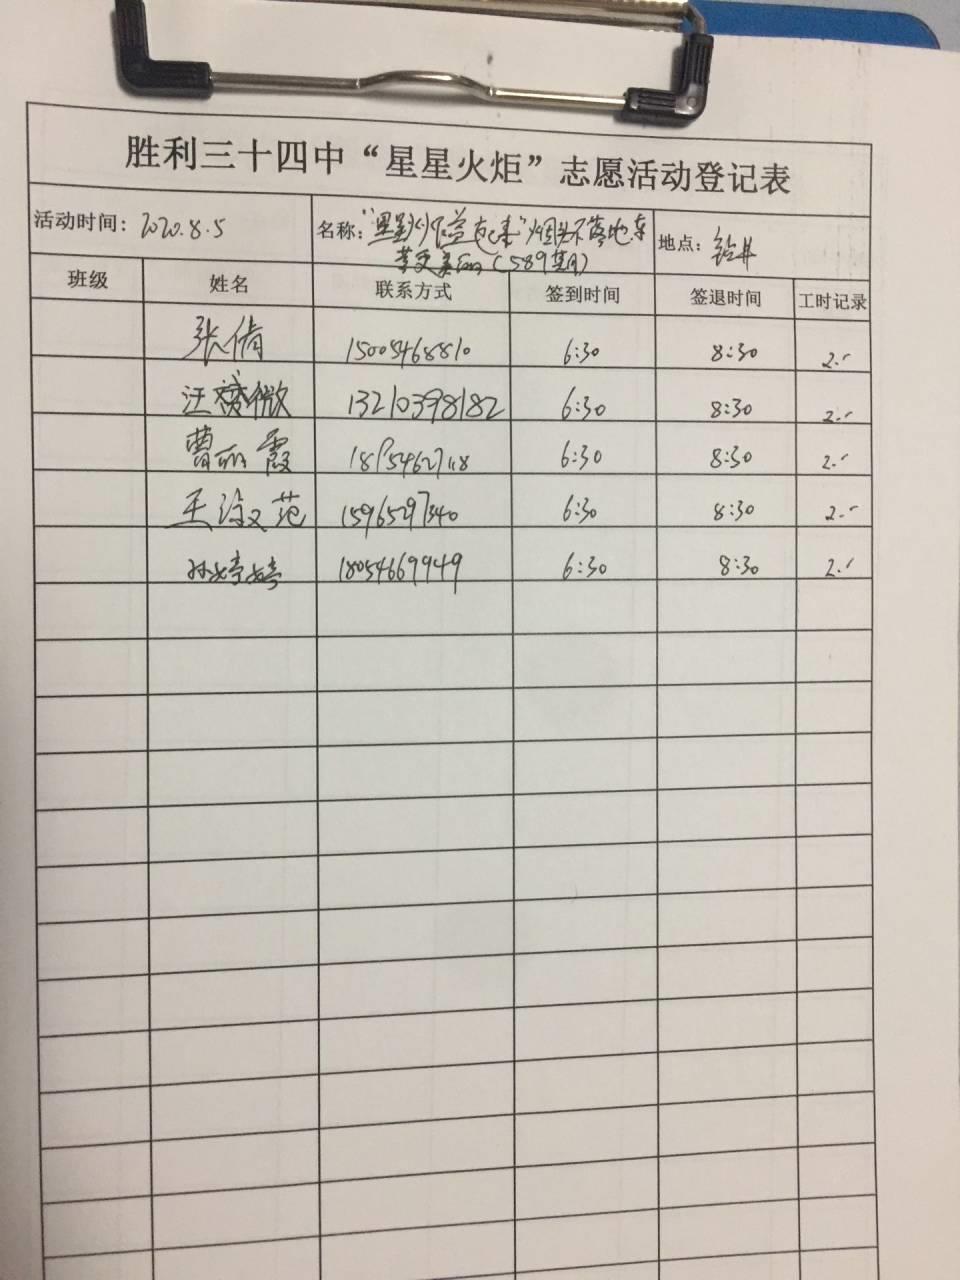 胜利三十四中“星星火炬”志愿活动登记表
活动时间: 2020.8.5 名称: 烟头不落地东 地点: 钻井
营更美丽(589期)
班级 姓名 联系方式 签到时间 签退时间 工时记录
张倩 15005468810 6:30 8:30 2.
汪 微 13210398182 6:30 8:30 2.
曹丽霞 6:30 8:30 2.
王 范 15965297340 6:30 8:30 2.
孙婷婷 18054669949 6:30 8:30 2.